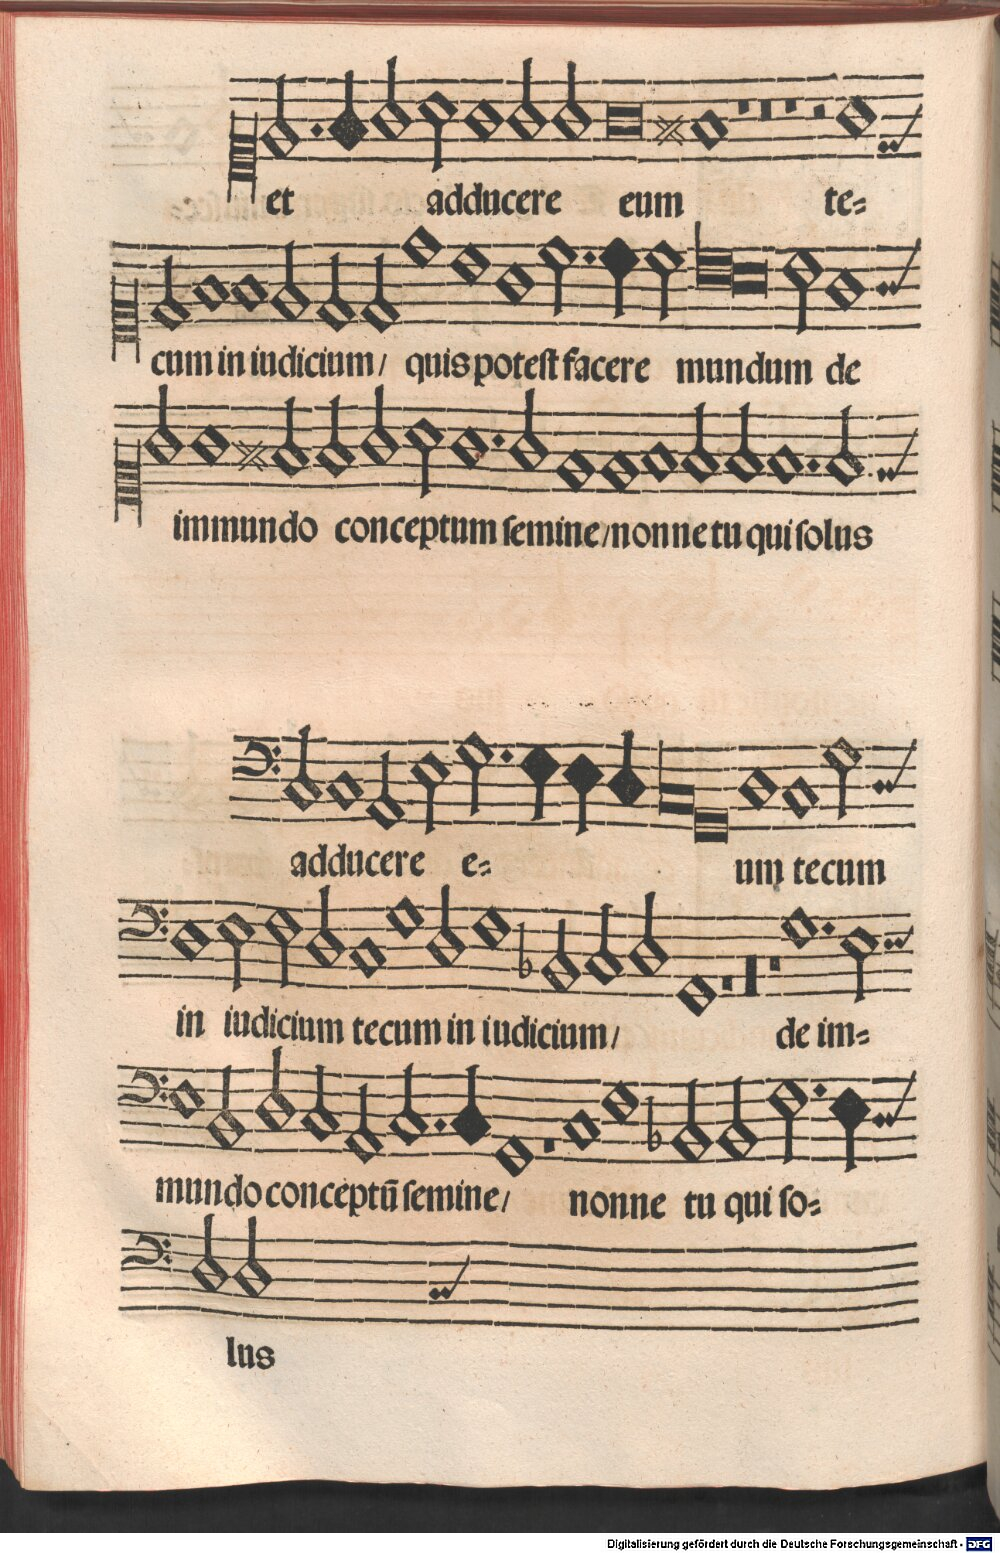 et adducere eum te=
cum in iudicium/ quis potest facere mundum de
immundo conceptum semine/ nonne tu qui solus
adducere e= um tecum
in iudicium tecum in iudicium/ de im=
mundo conceptū semine/ nonne tu qui so=
lus
Digitalisierung gefördert durch die Deutsche Forschungsgemeinschaft - DFG